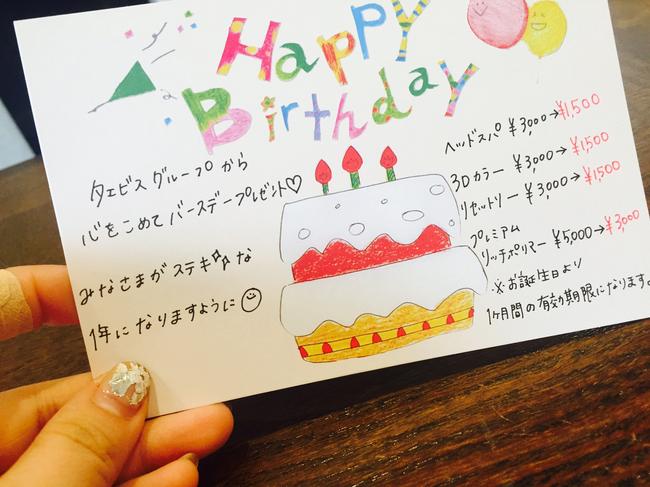 Happy
Birthday
タエビスグループから
心をこめてバースデープレゼント♡
みなさまがステキな
1年になりますように
ヘッドスパ ¥3,000→¥1,500
3Dカラー ¥3,000→¥1,500
リセットリー ¥3,000→¥1,500
プレミアム
リッチポリマー ¥5,000→¥3,000
※お誕生日より
1ヶ月間の有効期限になります。